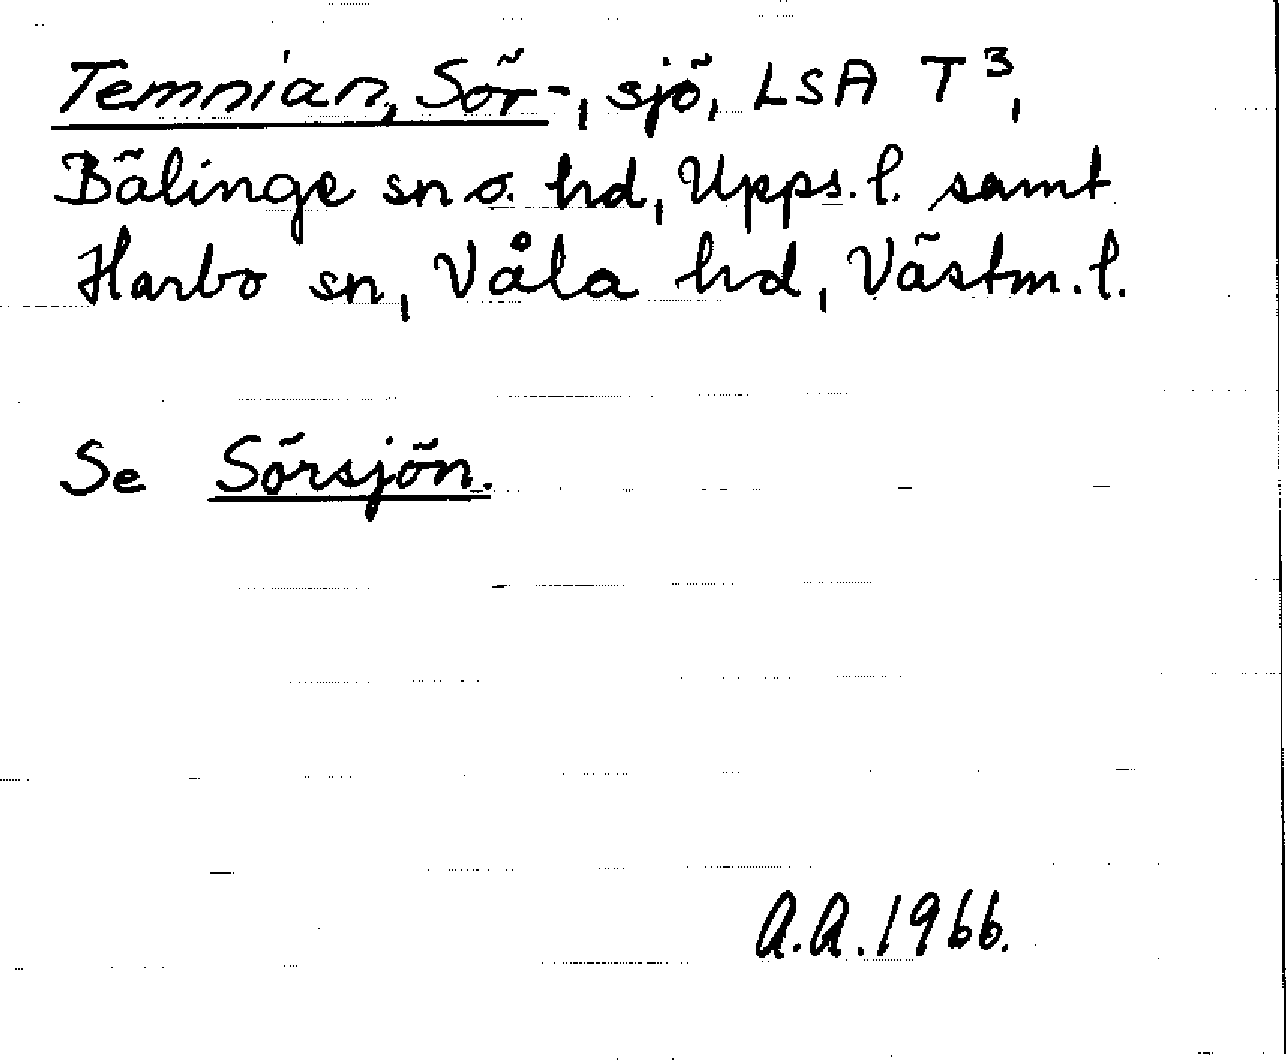 Temnian, Sör-, sjö, LSA T³,
Bälinge sn o. hd, Upps. l. samt
Harbo sn, Våla hd, Västm. l.
Se Sörsjön.
A.A. 1966.